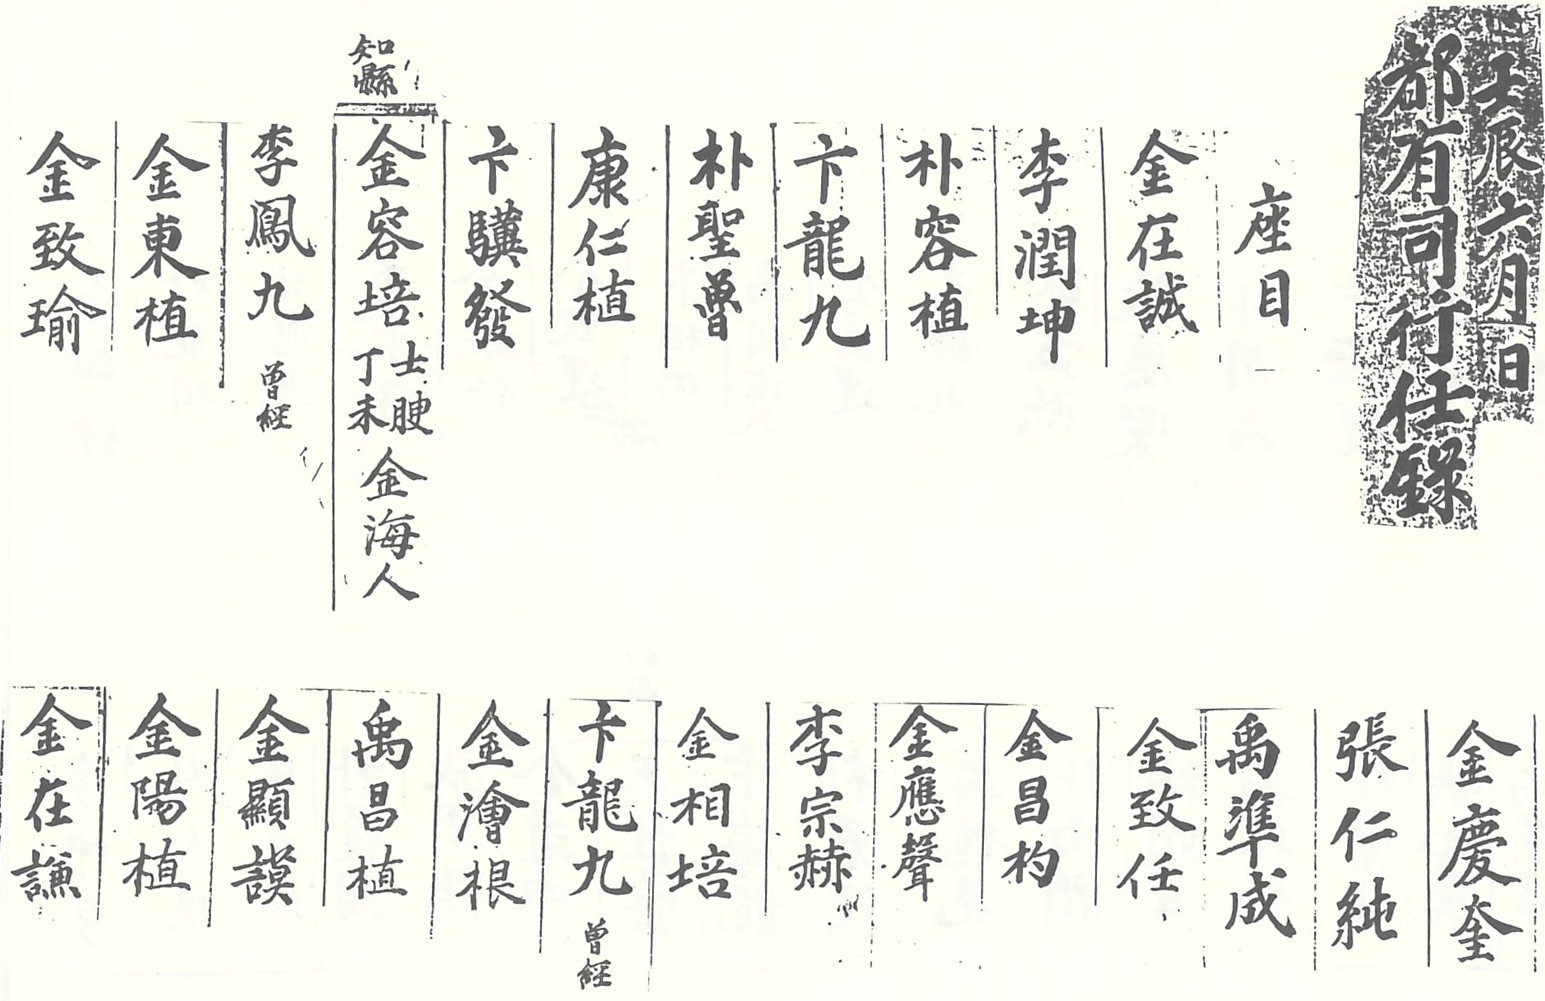 壬辰六月日
都有司行任錄
座目
金在誠
李潤坤
朴容植
卞龍九
朴聖曾
康仁植
卞驥發
知縣
金容培 士腴 丁未 金海人
李鳳九 曾經
金東植
金致瑜
金慶奎
張仁純
禹準成
金致任
金昌杓
金應聲
李宗赫
金相培
卞龍九 曾經
金濬根
禹昌植
金顯謨
金陽植
金在謙